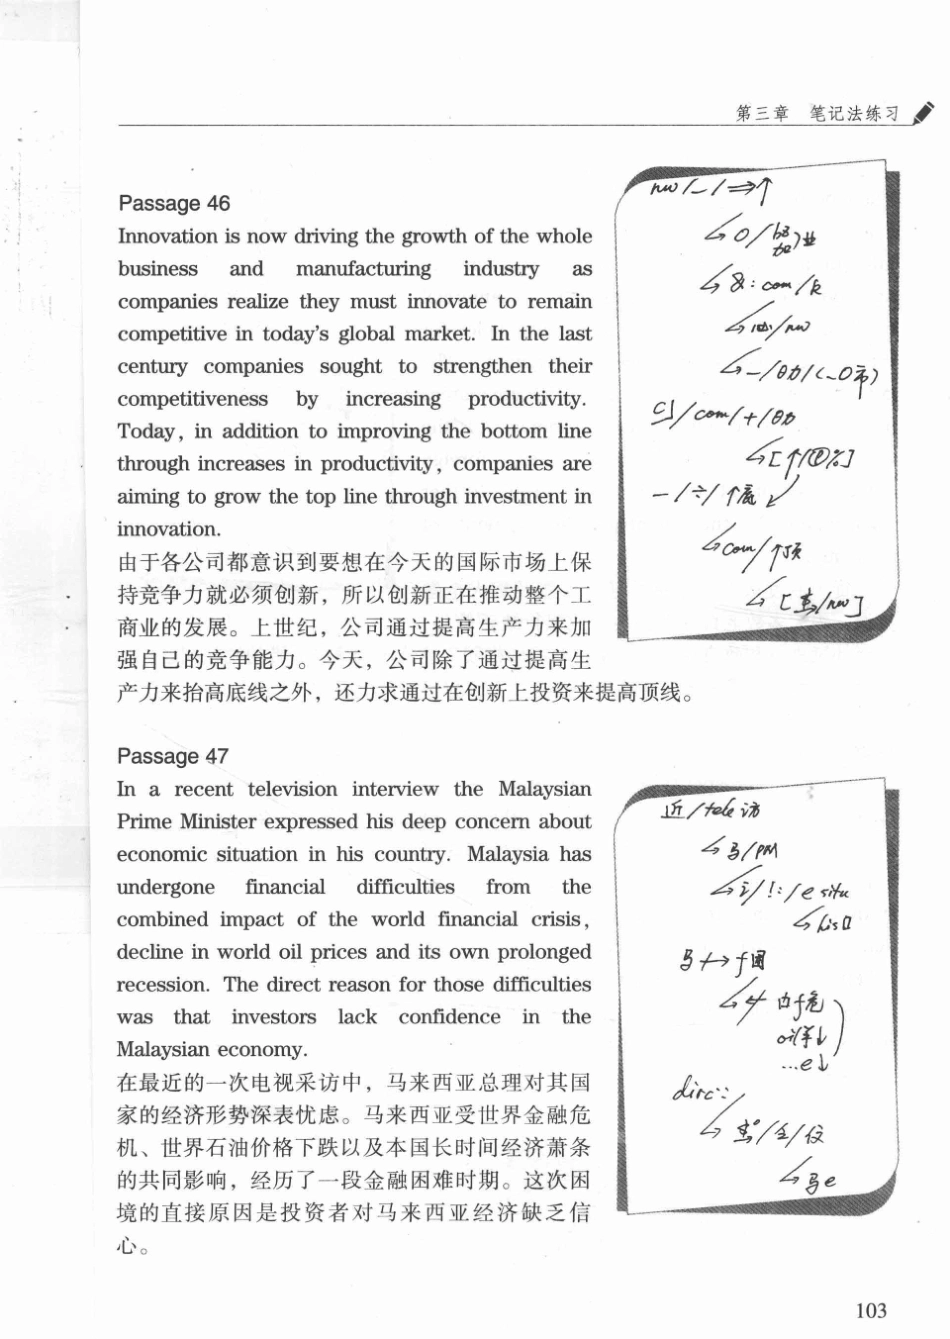 第三章 笔记法练习
Passage 46
Innovation is now driving the growth of the whole
business and manufacturing industry as
companies realize they must innovate to remain
competitive in today's global market. In the last
century companies sought to strengthen their
competitiveness by increasing productivity.
Today, in addition to improving the bottom line
through increases in productivity, companies are
aiming to grow the top line through investment in
innovation.
由于各公司都意识到要想在今天的国际市场上保
持竞争力就必须创新，所以创新正在推动整个工
商业的发展。上世纪，公司通过提高生产力来加
强自己的竞争能力。今天，公司除了通过提高生
产力来抬高底线之外，还力求通过在创新上投资来提高顶线。
nw
com
com
com
Passage 47
In a recent television interview the Malaysian
Prime Minister expressed his deep concern about
economic situation in his country. Malaysia has
undergone financial difficulties from the
combined impact of the world financial crisis,
decline in world oil prices and its own prolonged
recession. The direct reason for those difficulties
was that investors lack confidence in the
Malaysian economy.
在最近的一次电视采访中，马来西亚总理对其国
家的经济形势深表忧虑。马来西亚受世界金融危
机、世界石油价格下跌以及本国长时间经济萧条
的共同影响，经历了一段金融困难时期。这次困
境的直接原因是投资者对马来西亚经济缺乏信
心。
近/tele访
马/PM
e situ
his
马
oil
…e↓
马e
103